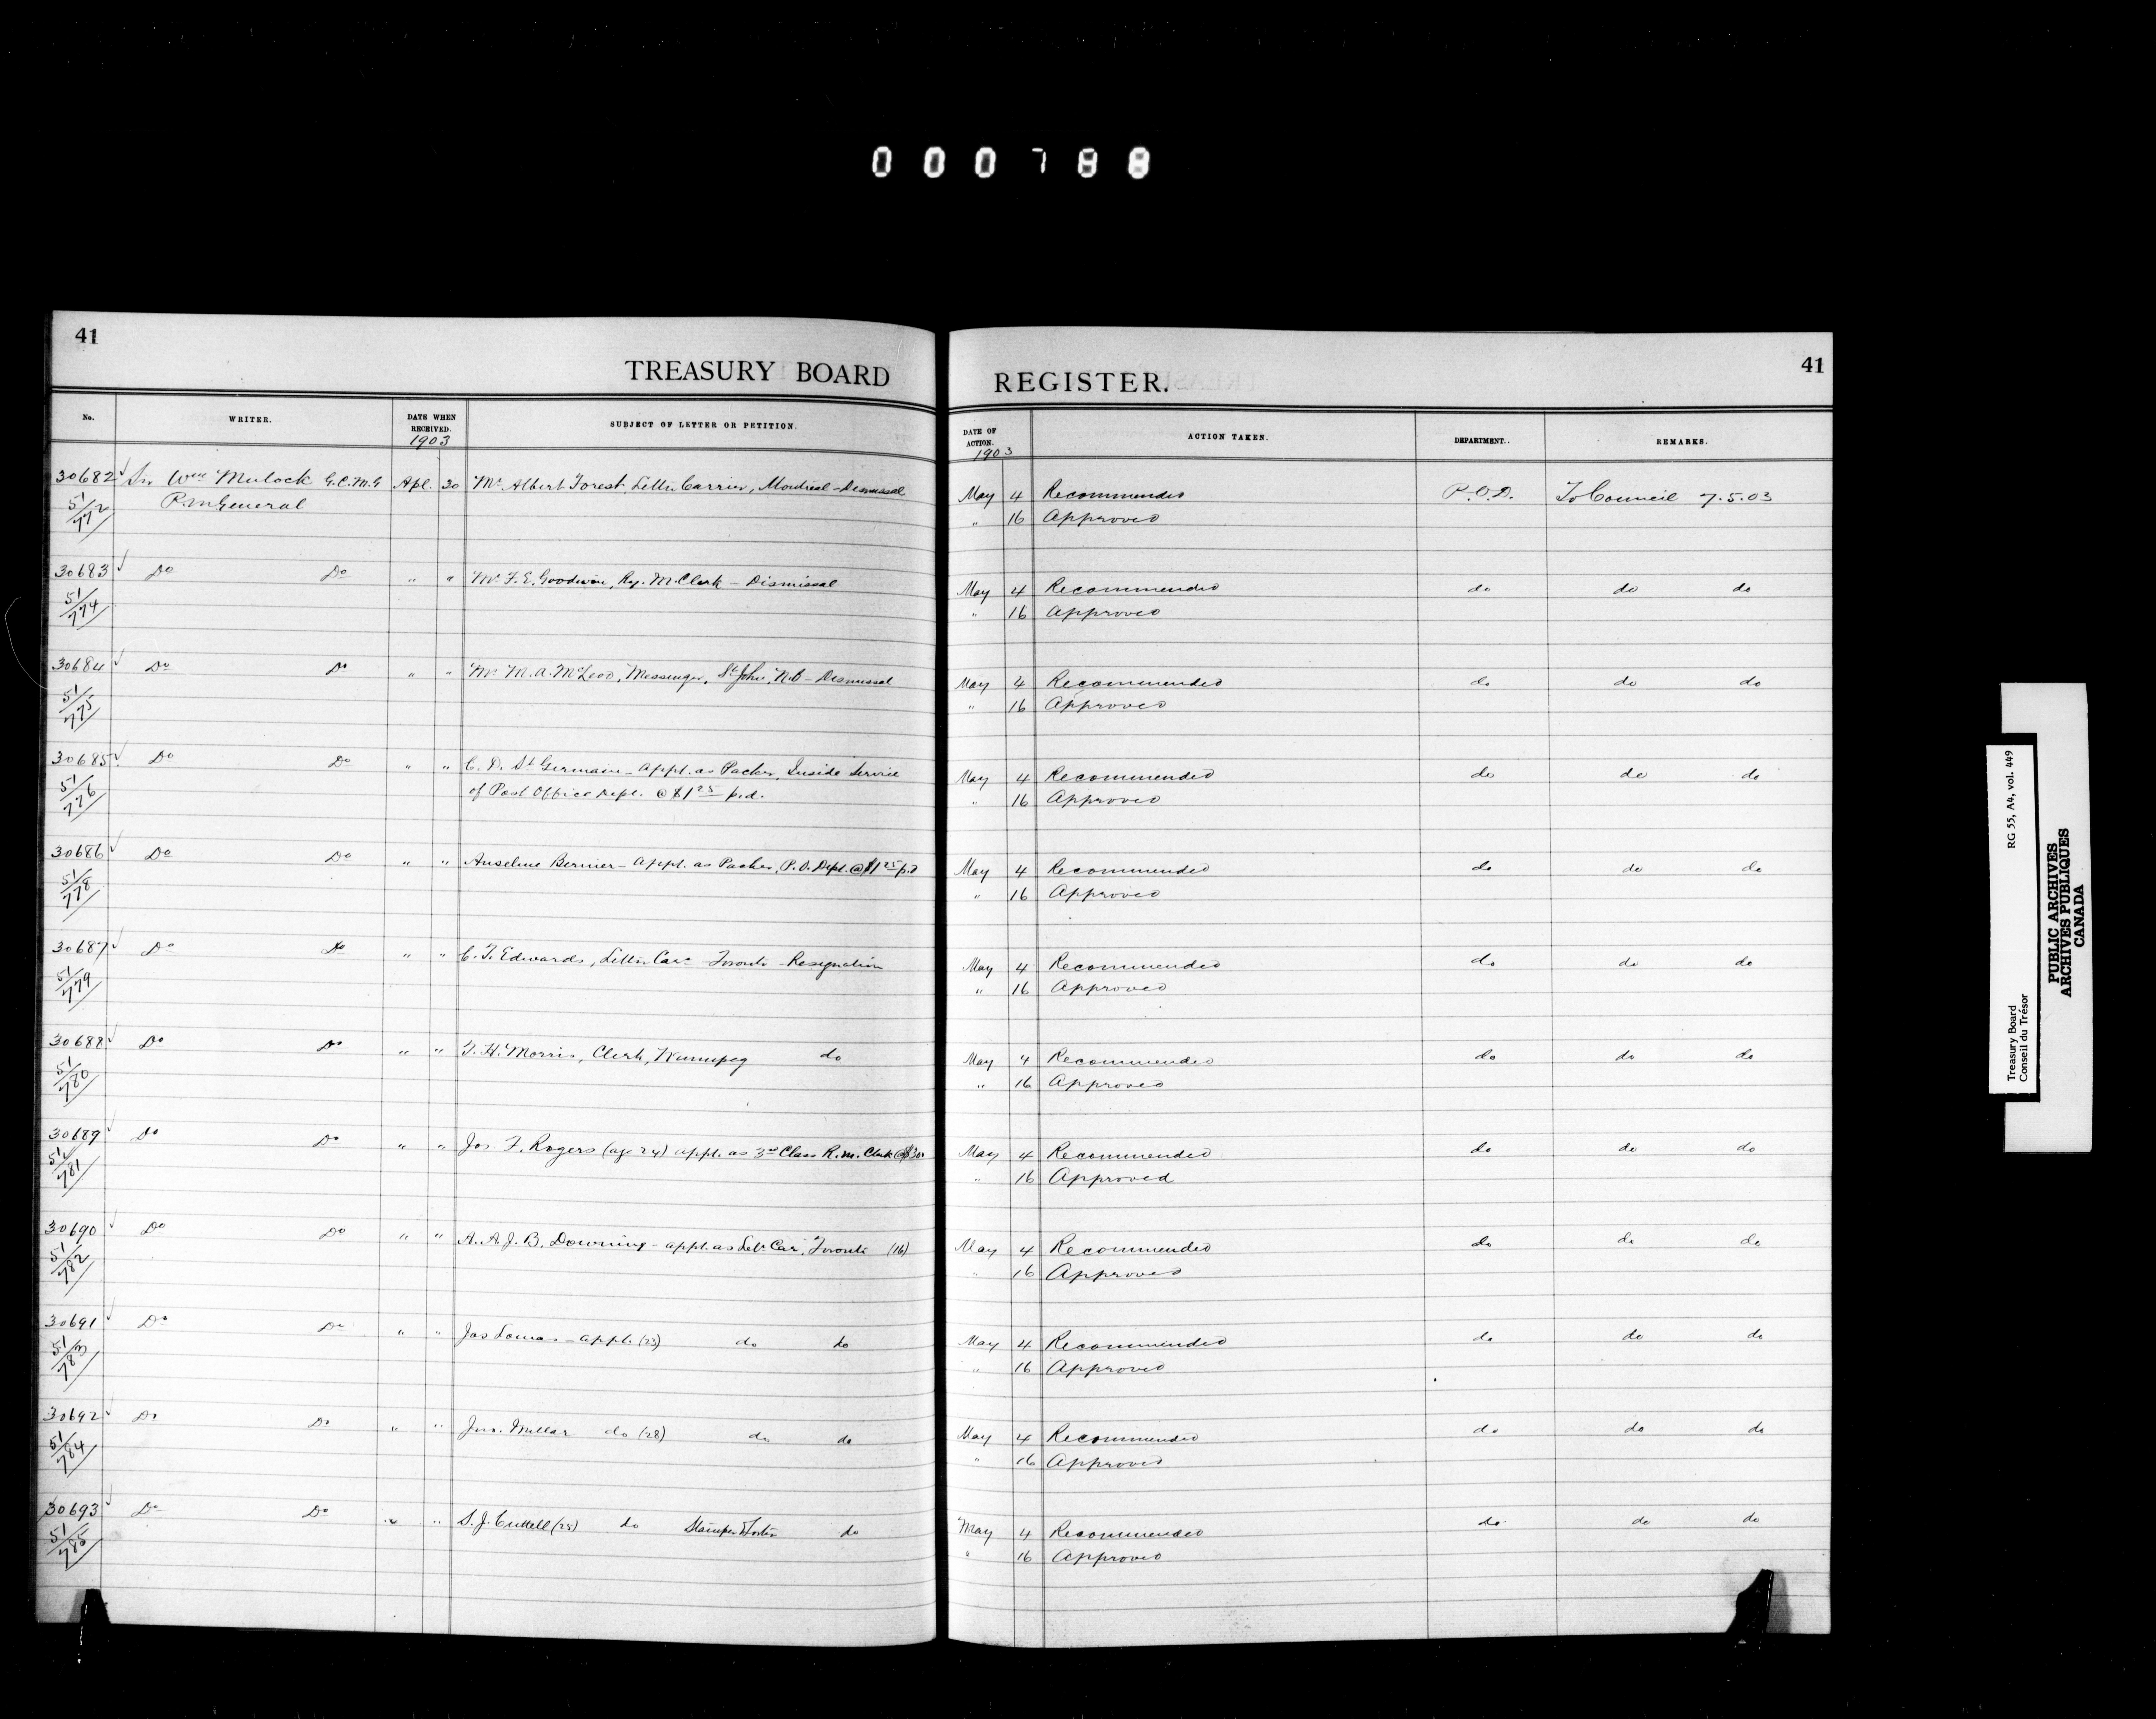 000788
41
TREASURY BOARD REGISTER.
41
No. WRITER. DATE WHEN RECEIVED. SUBJECT OF LETTER OR PETITION. DATE OF ACTION. ACTION TAKEN. DEPARTMENT. REMARKS.
1903 1903
30682 Sir Wm Mulock G.C.M.G Apl. 30 Mr Albert Forest, Letter Carrier, Montreal - Dismissal May 4 Recommended P.O.D. To Council 7.5.03
51/772 P.M General " 16 Approved
30683 Do Do " " Mr F. E. Goodwin, Ry. M. Clerk - Dismissal May 4 Recommended do do do
51/774 " 16 Approved
30684 Do Do " " Mr M. A. McLeod, Messenger, St John, N.B - Dismissal May 4 Recommended do do do
51/775 " 16 Approved
30685 Do Do " " C. D. St Germain - appt. as Packer, Inside Service May 4 Recommended do do do
51/776 of Post Office Dept. @ $1 25 p.d. " 16 Approved
30686 Do Do " " Anselme Bernier - appt. as Packer, P.O. Dept. @ $1 25 p.d May 4 Recommended do do do
51/778 " 16 Approved
30687 Do Do " " C. T. Edwards, Letter Carr - Toronto - Resignation May 4 Recommended do do do
51/779 " 16 Approved
30688 Do Do " " T. H. Morris, Clerk, Winnipeg do May 4 Recommended do do do
51/780 " 16 Approved
30689 Do Do " " Jos. F. Rogers (age 24) appt. as 3rd Class R.M. Clerk May 4 Recommended do do do
51/781 " 16 Approved
30690 Do Do " " A. A. J. B. Downing - appt. as Letr Car, Toronto (16) May 4 Recommended do do do
51/782 " 16 Approved
30691 Do Do " " Jas Lomas - appt. (23) do do May 4 Recommended do do do
51/783 " 16 Approved
30692 Do Do " " Jno. Millar do (28) do do May 4 Recommended do do do
51/784 " 16 Approved
30693 Do Do " " S. J. Cuttell (25) do Stamper & Sorter do May 4 Recommended do do do
51/785 " 16 Approved
Treasury Board RG 55, A4, vol. 449
Conseil du Trésor
PUBLIC ARCHIVES
ARCHIVES PUBLIQUES
CANADA